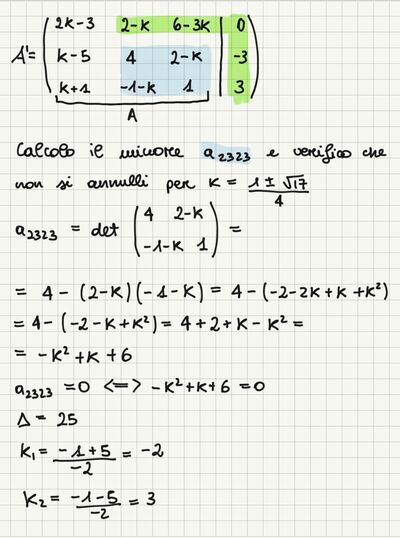 A' = ( 2k-3 2-k 6-3k | 0
k-5 4 2-k | -3
k+1 -1-k 1 | 3 )
A
Calcolo il minore a2323 e verifico che
non si annulli per k = (1 ± √17)/4
a2323 = det ( 4 2-k
-1-k 1 ) =
= 4 - (2-k)(-1-k) = 4 - (-2-2k+k+k²)
= 4 - (-2-k+k²) = 4+2+k-k² =
= -k²+k+6
a2323 = 0 <=> -k²+k+6 = 0
Δ = 25
k₁ = (-1+5)/(-2) = -2
k₂ = (-1-5)/(-2) = 3